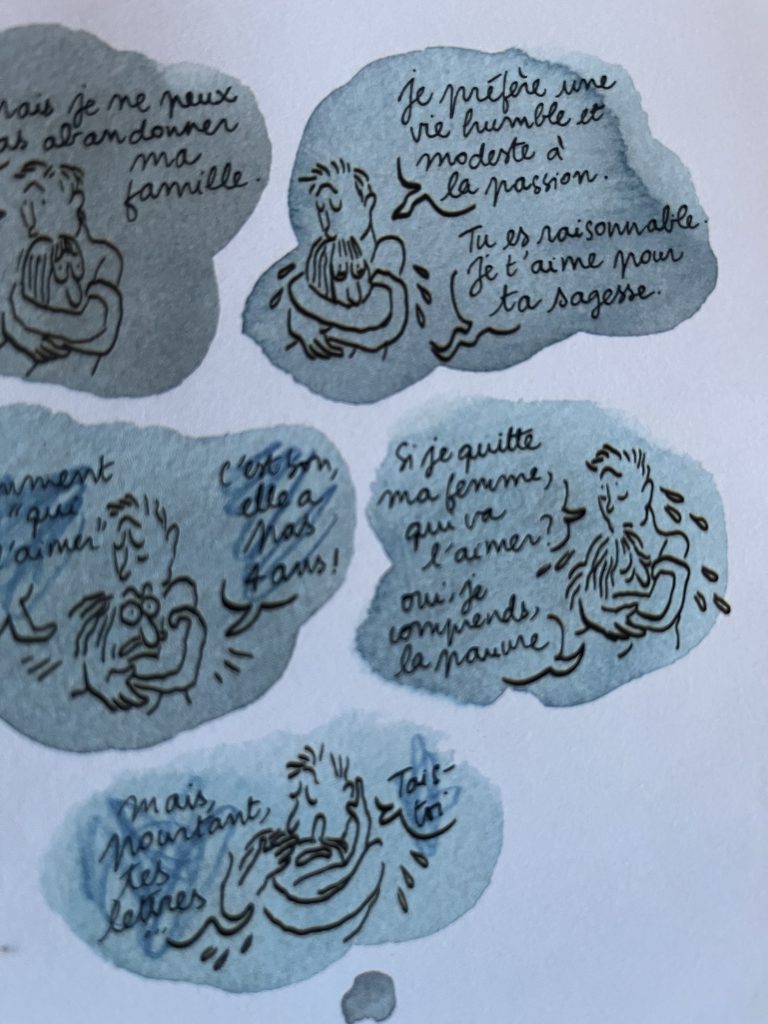 je ne peux
abandonner
ma
famille.
je préfère une
vie humble et
modeste à
la passion.
Tu es raisonnable.
Je t'aime pour
ta sagesse.
"que
l'aimer"
C'est bon,
elle a
pas
4 ans!
Si je quitte
ma femme,
qui va
l'aimer?
oui, je
comprends,
la pauvre
Mais,
pourtant,
tes
lettres
...
Tais-
toi